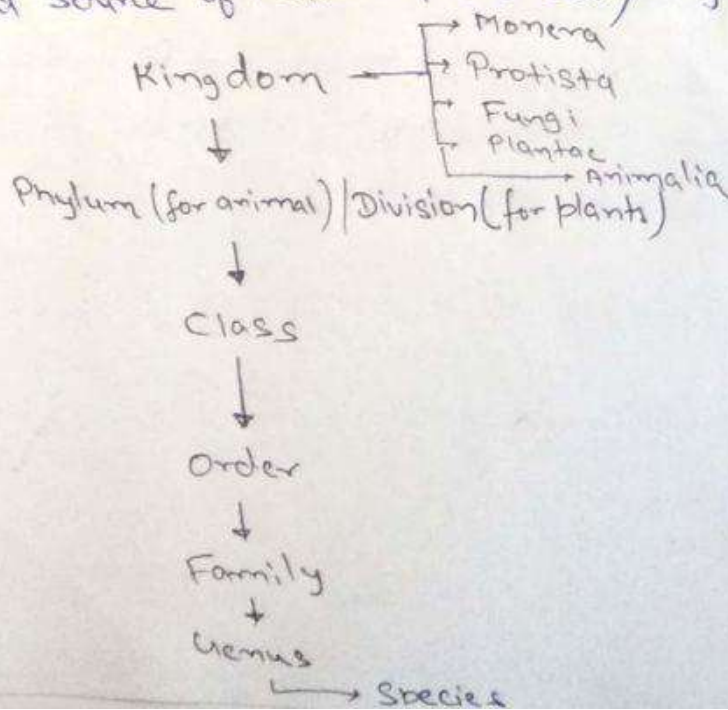 source of
Monera
Kingdom → Protista
Fungi
Plantae
Animalia
Phylum (for animal) | Division (for plants)
↓
Class
↓
Order
↓
Family
↓
Genus
→ Species